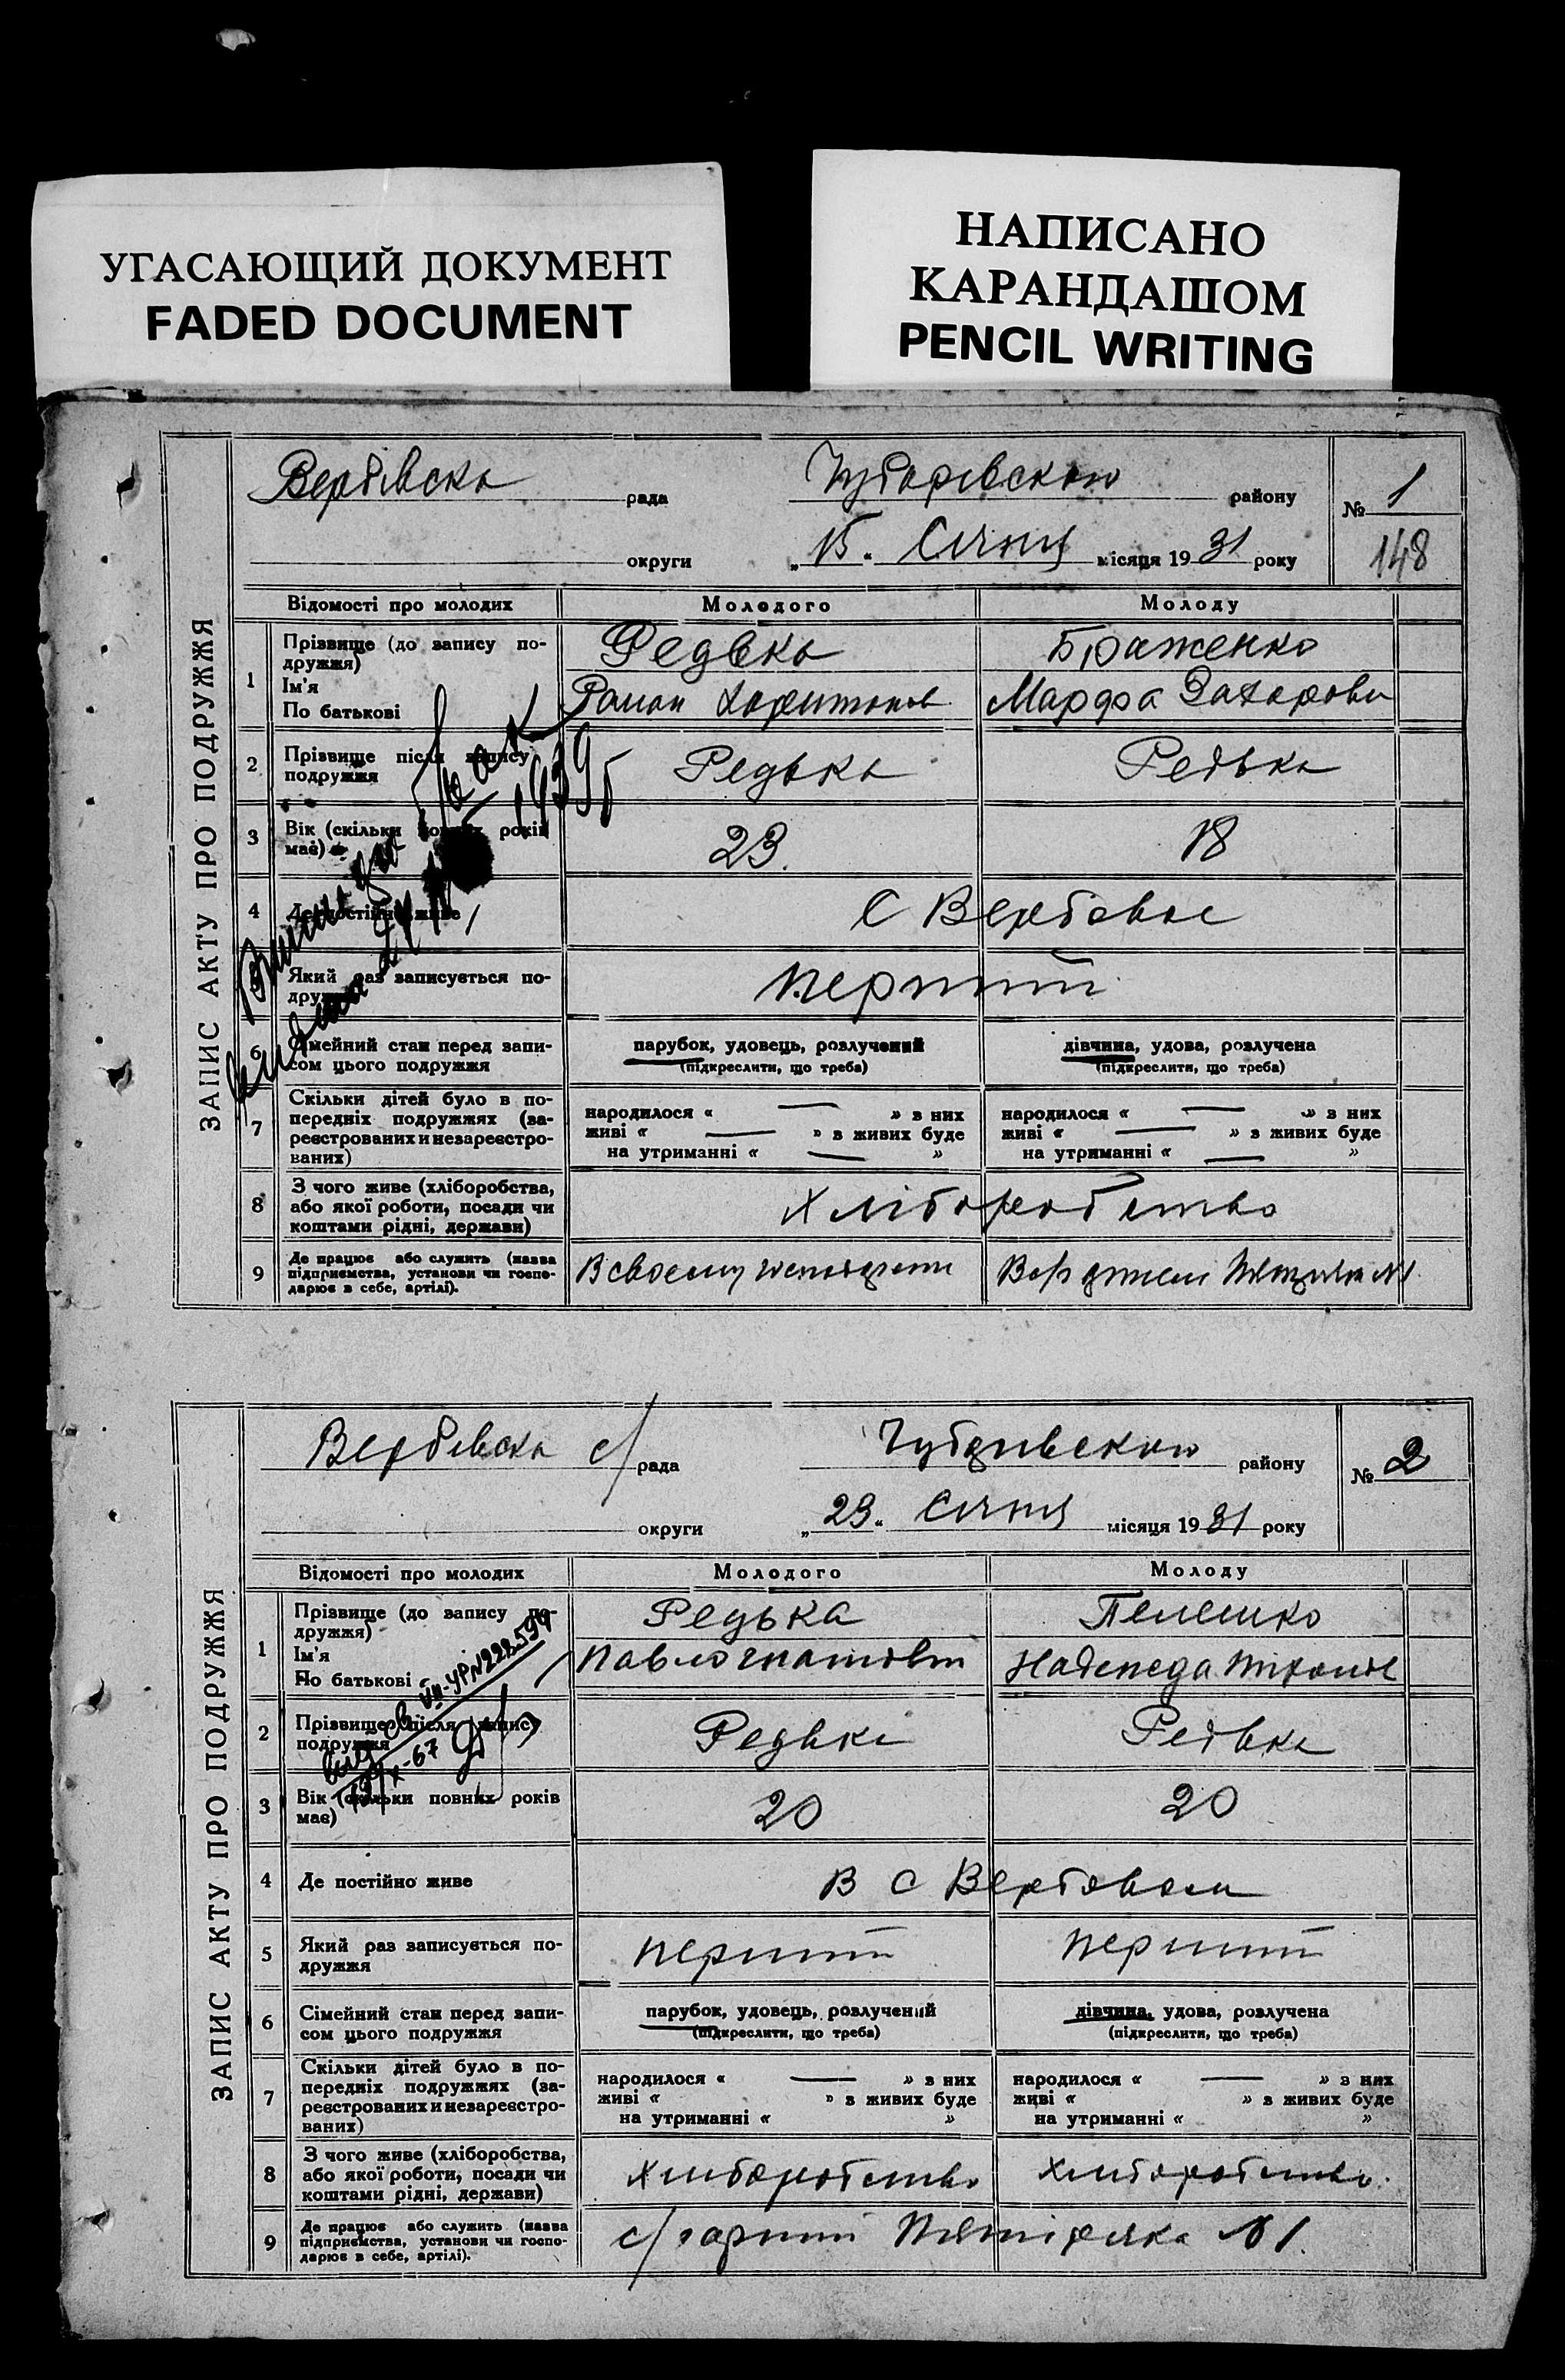 УГАСАЮЩИЙ ДОКУМЕНТ
FADED DOCUMENT
НАПИСАНО
КАРАНДАШОМ
PENCIL WRITING
ЗАПИС АКТУ ПРО ПОДРУЖЖЯ
Вербівська рада Чубарівського району № 1
округи „15“ Січня місяця 1931 року 148
Відомості про молодих Молодого Молоду
1 Прізвище (до запису по-
дружжя) Редька Браженко
Ім'я
По батькові Роман Харитонов Марфа Захарови
2 Прізвище після запису
подружжя Редька Редька
1939
3 Вік (скільки повних років
має) 23. 18
4 Де постійно живе С Вербовое
Який раз записується по-
дружжя перший
6 Сімейний стан перед запи-
сом цього подружжя парубок, удовець, розлучений дівчина, удова, розлучена
(підкреслити, що треба) (підкреслити, що треба)
7 Скільки дітей було в по-
передніх подружжях (за-
реєстрованих и незареєстро-
ваних)
народилося « — » з них народилося « — » з них
живі « — » з живих буде живі « — » з живих буде
на утриманні « — » на утриманні « — »
8 З чого живе (хліборобства,
або якої роботи, посади чи
коштами рідні, держави) Хліборобство
9 Де працює або служить (назва
підприємства, установи чи госпо-
дарює в себе, артілі). В своему №1.
ЗАПИС АКТУ ПРО ПОДРУЖЖЯ
Вербівська с/рада Чубарівського району № 2
округи „23“ Січня місяця 1931 року
Відомості про молодих Молодого Молоду
1 Прізвище (до запису по-
дружжя) Редька
Ім'я
По батькові Павло Гнатович Надежда
УП-УР №222594
2 Прізвище після запису
подружжя Редька Редька
X-67
3 Вік (скільки повних років
має) 20 20
4 Де постійно живе В С Вербовом
5 Який раз записується по-
дружжя перший перший
6 Сімейний стан перед запи-
сом цього подружжя парубок, удовець, розлучений дівчина, удова, розлучена
(підкреслити, що треба) (підкреслити, що треба)
7 Скільки дітей було в по-
передніх подружжях (за-
реєстрованих и незареєстро-
ваних)
народилося « — » з них народилося « — » з них
живі « » з живих буде живі « » з живих буде
на утриманні « » на утриманні « »
8 З чого живе (хліборобства,
або якої роботи, посади чи
коштами рідні, держави) Хліборобство Хліборобство.
9 Де працює або служить (назва
підприємства, установи чи госпо-
дарює в себе, артілі). с/г артілі Пятирічка №1.